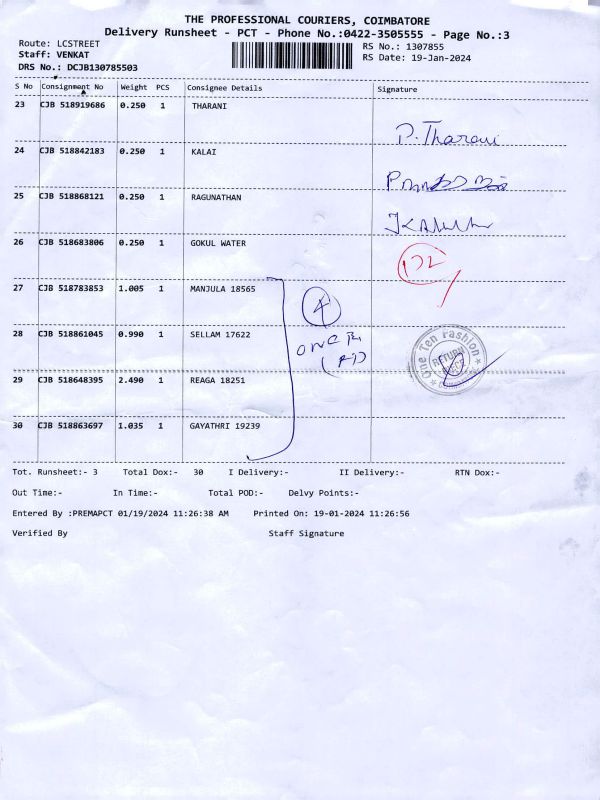 THE PROFESSIONAL COURIERS, COIMBATORE
Delivery Runsheet - PCT - Phone No.:0422-3505555 - Page No.:3
Route: LCSTREET
RS No.: 1307855
Staff: VENKAT
RS Date: 19-Jan-2024
DRS No.: DCJB130785503
S No Consignment No Weight PCS Consignee Details Signature
23 CJB 518919686 0.250 1 THARANI
P. Tharani
24 CJB 518842183 0.250 1 KALAI
25 CJB 518868121 0.250 1 RAGUNATHAN
26 CJB 518683806 0.250 1 GOKUL WATER
27 CJB 518783853 1.005 1 MANJULA 18565
4
28 CJB 518861045 0.990 1 SELLAM 17622
One Ten Fashion
RETURN
29 CJB 518648395 2.490 1 REAGA 18251
30 CJB 518863697 1.035 1 GAYATHRI 19239
Tot. Runsheet:- 3 Total Dox:- 30 I Delivery:- II Delivery:- RTN Dox:-
Out Time:- In Time:- Total POD:- Delvy Points:-
Entered By :PREMAPCT 01/19/2024 11:26:38 AM Printed On: 19-01-2024 11:26:56
Verified By Staff Signature